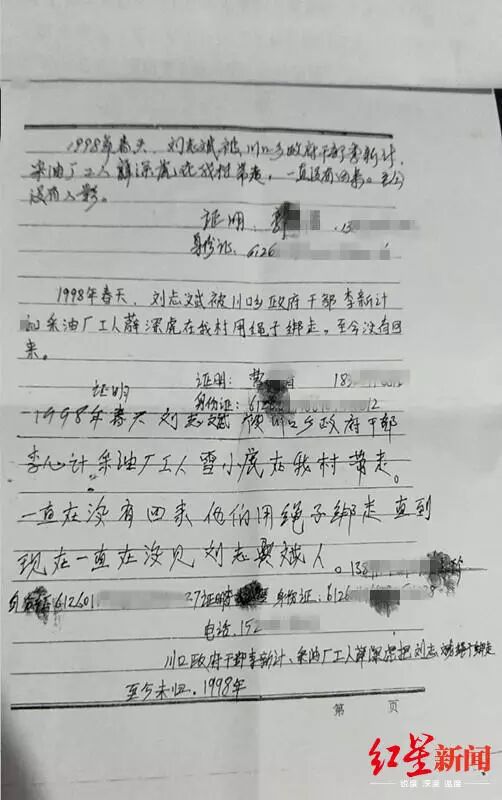 1998年春天、刘志斌被川口乡政府干部李新计、
采油厂工人薛深虎在我村带走,一直没有回来。至今
没有人影。
证明:郭 13
身份证:6126
1998年春天、刘志斌被川口乡政府干部李新计
和采油厂工人薛深虎在我村用绳子绑走,至今没有回
来。
证明:曹 18
证明
身份证:612 12
1998年春天刘志斌被川口乡政府干部
李心计采油厂工人雪小虎在我村带走。
一直在没有回来他们用绳子绑走直到
现在一直在没见刘志斌人。13
612601 27证明 身份证:6126 78
电话.152
川口政府干部李新计、采油厂工人薛深虎把刘志 绑走
至今未归。1998年
第 页
红星新闻
锐度 深度 温度